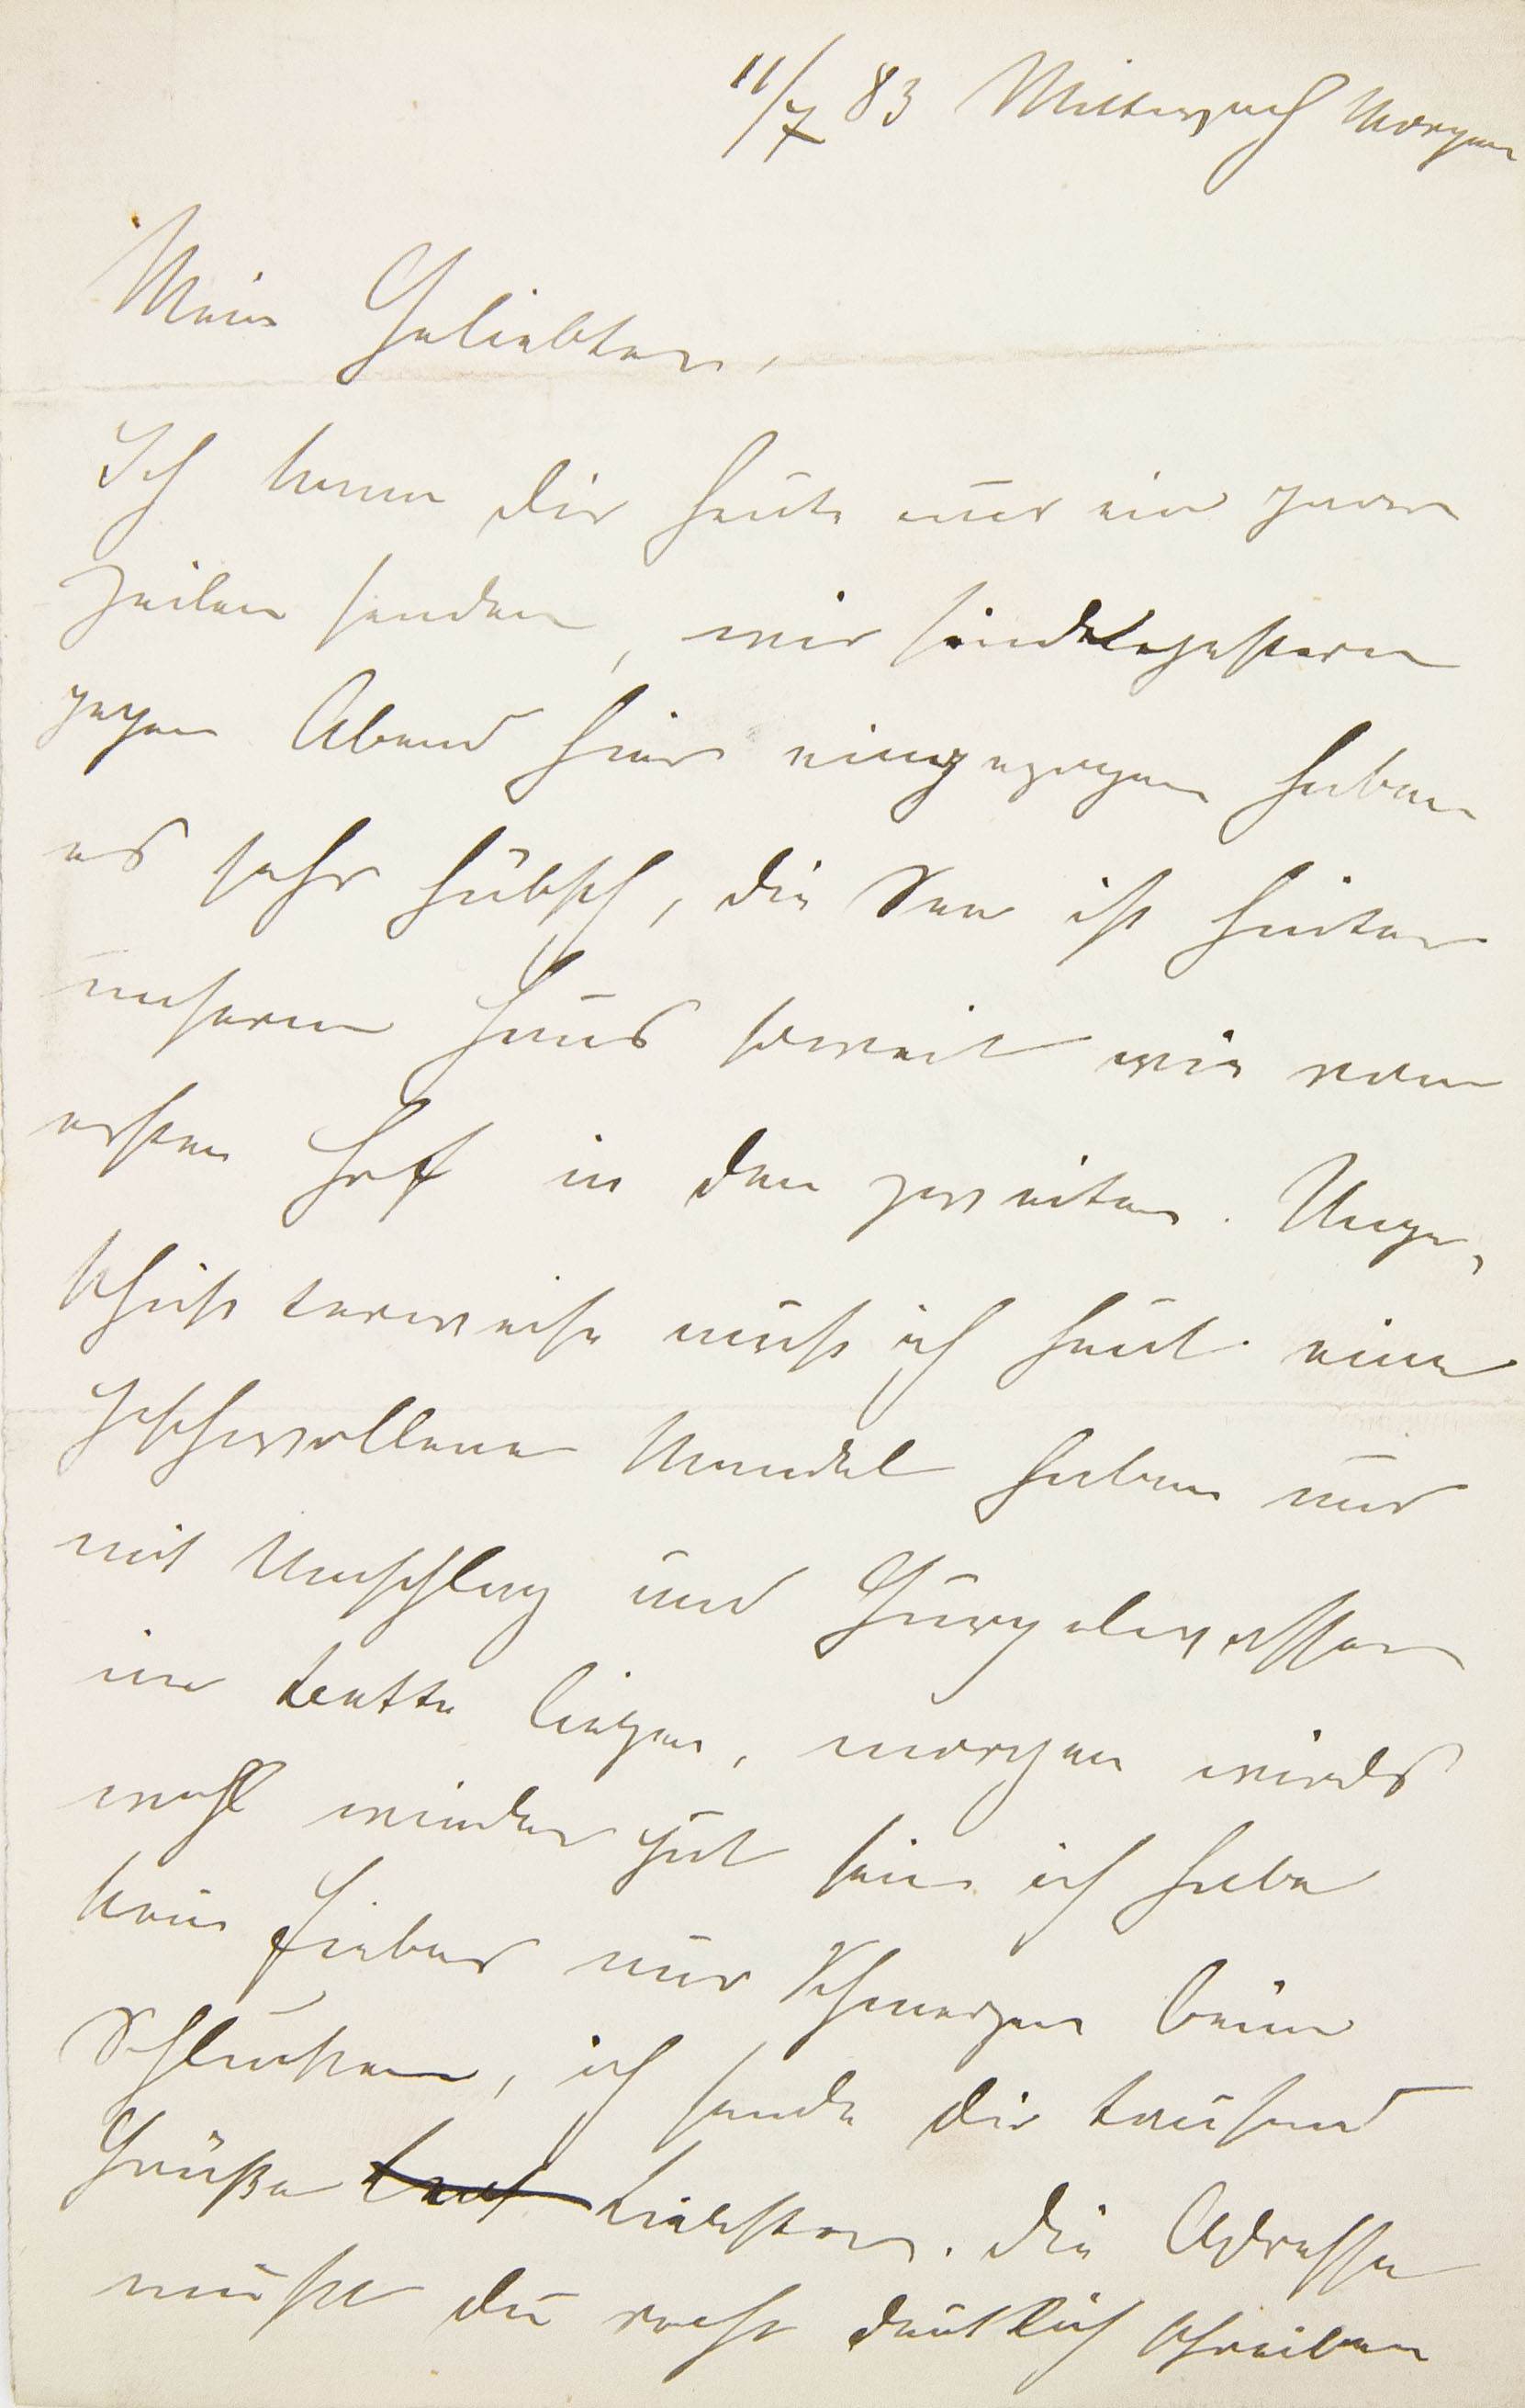 11/7 83 Mittwoch Morgen
Mein Geliebter,
Ich kann dir heute nur ein paar
Zeilen senden, wir sind gestern
gegen Abend hier eingezogen haben
es sehr hübsch, die See ist hinter
unserem Haus soweit wie vom
ersten Hof in den zweiten. Unge-
schickterweise muß ich heut eine
geschwollene Mandel haben und
mit Umschlag und Gurgelwasser
im Bette liegen, morgen wirds
wohl wieder gut sein ich habe
kein Fieber nur Schmerzen beim
Schlucken, ich sende dir tausend
Grüße Liebster. die Adresse
mußt du recht deutlich schreiben